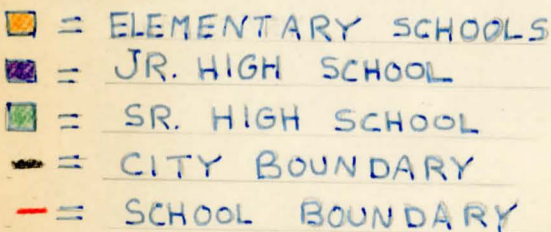 = ELEMENTARY SCHOOLS
= JR. HIGH SCHOOL
= SR. HIGH SCHOOL
= CITY BOUNDARY
= SCHOOL BOUNDARY